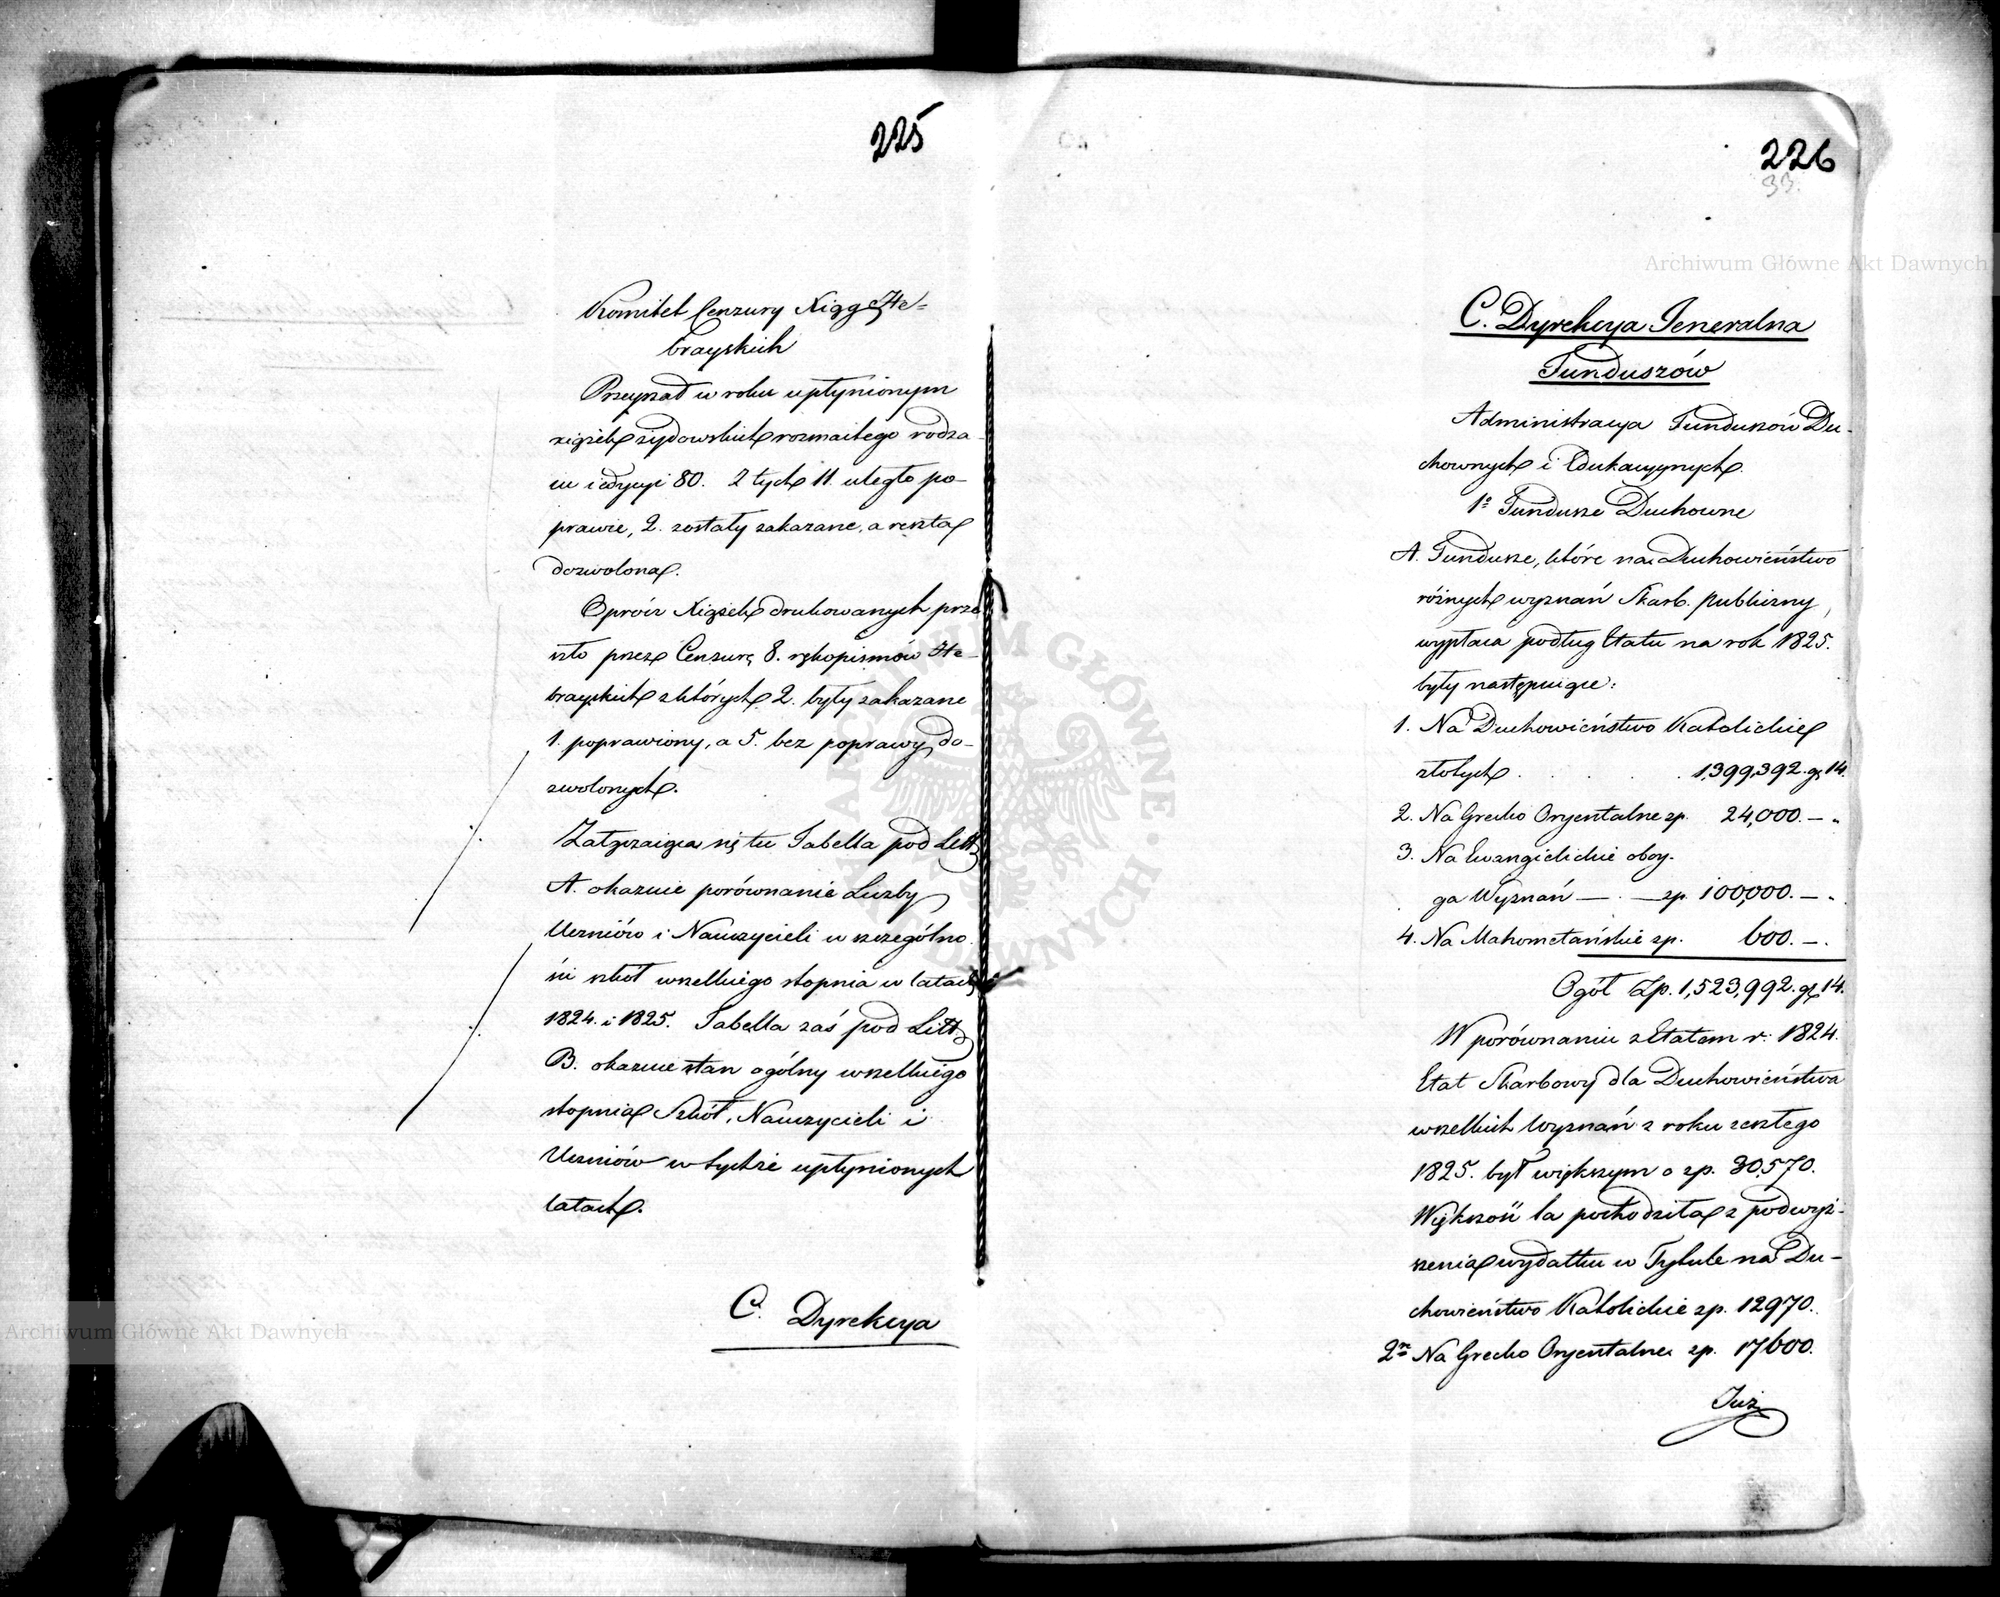 225
Komitet Cenzury Xiąg He-
brayskich
Przeyrzał w roku upłynionym
xiążek żydowskich rozmaitego rodza-
iu i edycyi 80. Z tych 11. uległo po-
prawie, 2. zostały zakazane, a reszta
dozwolona.
Oprócz Xiążek drukowanych prze-
szło przez Cenzurę 8. rękopismów He-
brayskich z których 2. były zakazane
1. poprawiony, a 5. bez poprawy do-
zwolonych.
Załączaiąca się tu Tabella pod Litt.
A. okazuie porównanie Liczby
Uczniów i Nauczycieli w szczególno-
ści szkół wszelkiego stopnia w latach
1824. i 1825. Tabella zaś pod Litt.
B. okazuie stan ogólny wszelkiego
stopnia Szkół, Nauczycieli i
Uczniów w tychże upłynionych
latach.
C. Dyrekcya
226
33.
C. Dyrekcya Jeneralna
Funduszów
Administracya Funduszów Du-
chownych i Edukacyynych.
1º Fundusze Duchowne
A. Fundusze, które na Duchowieństwo
różnych wyznań Skarb. publiczny
wypłaca podług Etatu na rok 1825.
były następuiące:
1. Na Duchowieństwo Katolickie
złotych . . . 1,399,392. gr 14.
2. Na Grecko Oryentalne zp. 24,000. — „
3. Na Ewangielickie oboy-
ga Wyznań — . — zp. 100,000. — „
4. Na Mahometańskie zp. 600. — .
Ogół Zp. 1,523,992. gr 14.
W porównaniu z Etatem r: 1824.
Etat Skarbowy dla Duchowieństwa
wszelkich Wyznań z roku zeszłego
1825. był większym o zp. 30,570.
Większość ta pochodziła z podwyż-
szenia wydatku w Tytule na Du-
chowieństwo Katolickie zp. 12970.
2re Na Grecko Oryentalne zp. 17600.
Już
Archiwum Główne Akt Dawnych
Archiwum Główne Akt Dawnych
ARCHIWUM GŁÓWNE AKT DAWNYCH